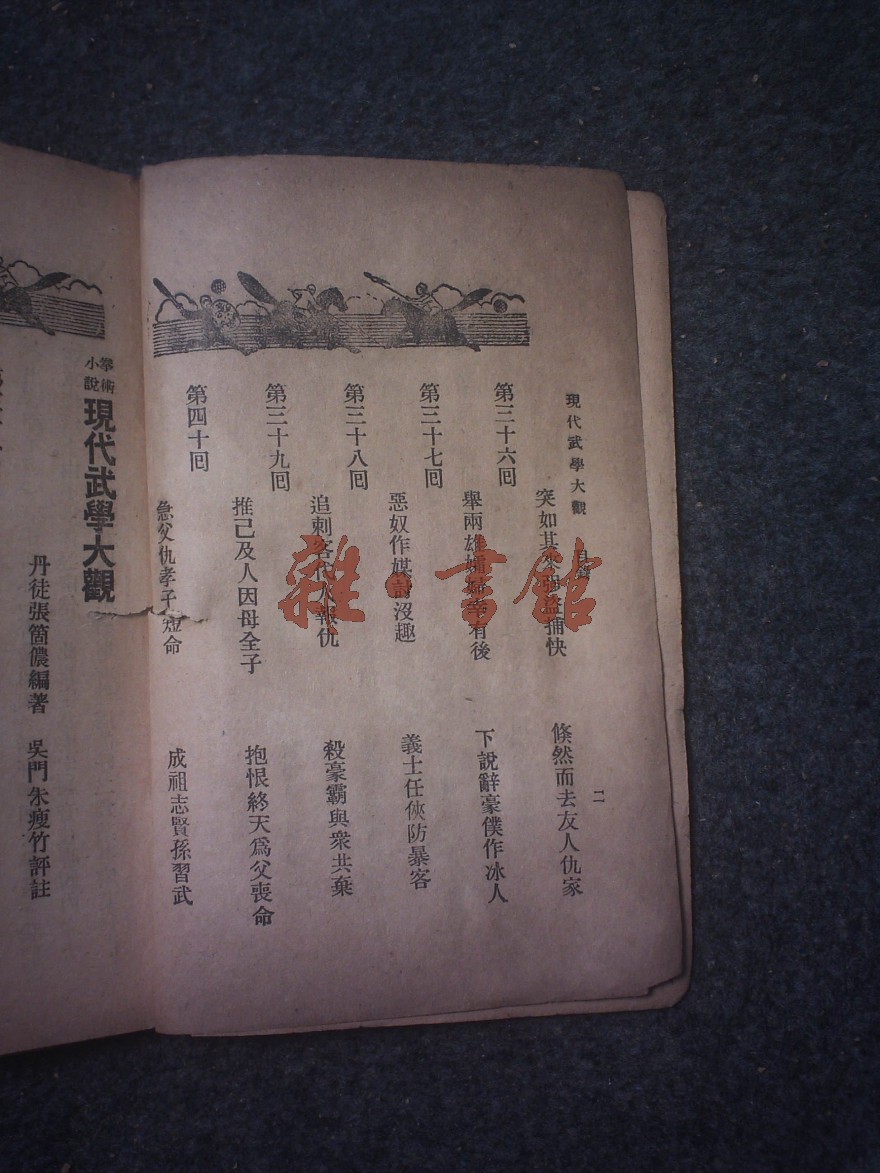 現代武學大觀 目錄 二
第三十六回 突如其來強盜捕快 倏然而去友人仇家
第三十七回 舉兩雄 有後 下說辭豪僕作冰人
第三十八回 惡奴作媒討沒趣 義士任俠防暴客
第三十九回 追刺客代人報仇 殺豪霸與衆共棄
推己及人因母全子 抱恨終天爲父喪命
第四十回 急父仇孝子短命 成祖志賢孫習武
拳術小說 現代武學大觀
丹徒張箇儂編著 吳門朱瘦竹評註
雜·書館